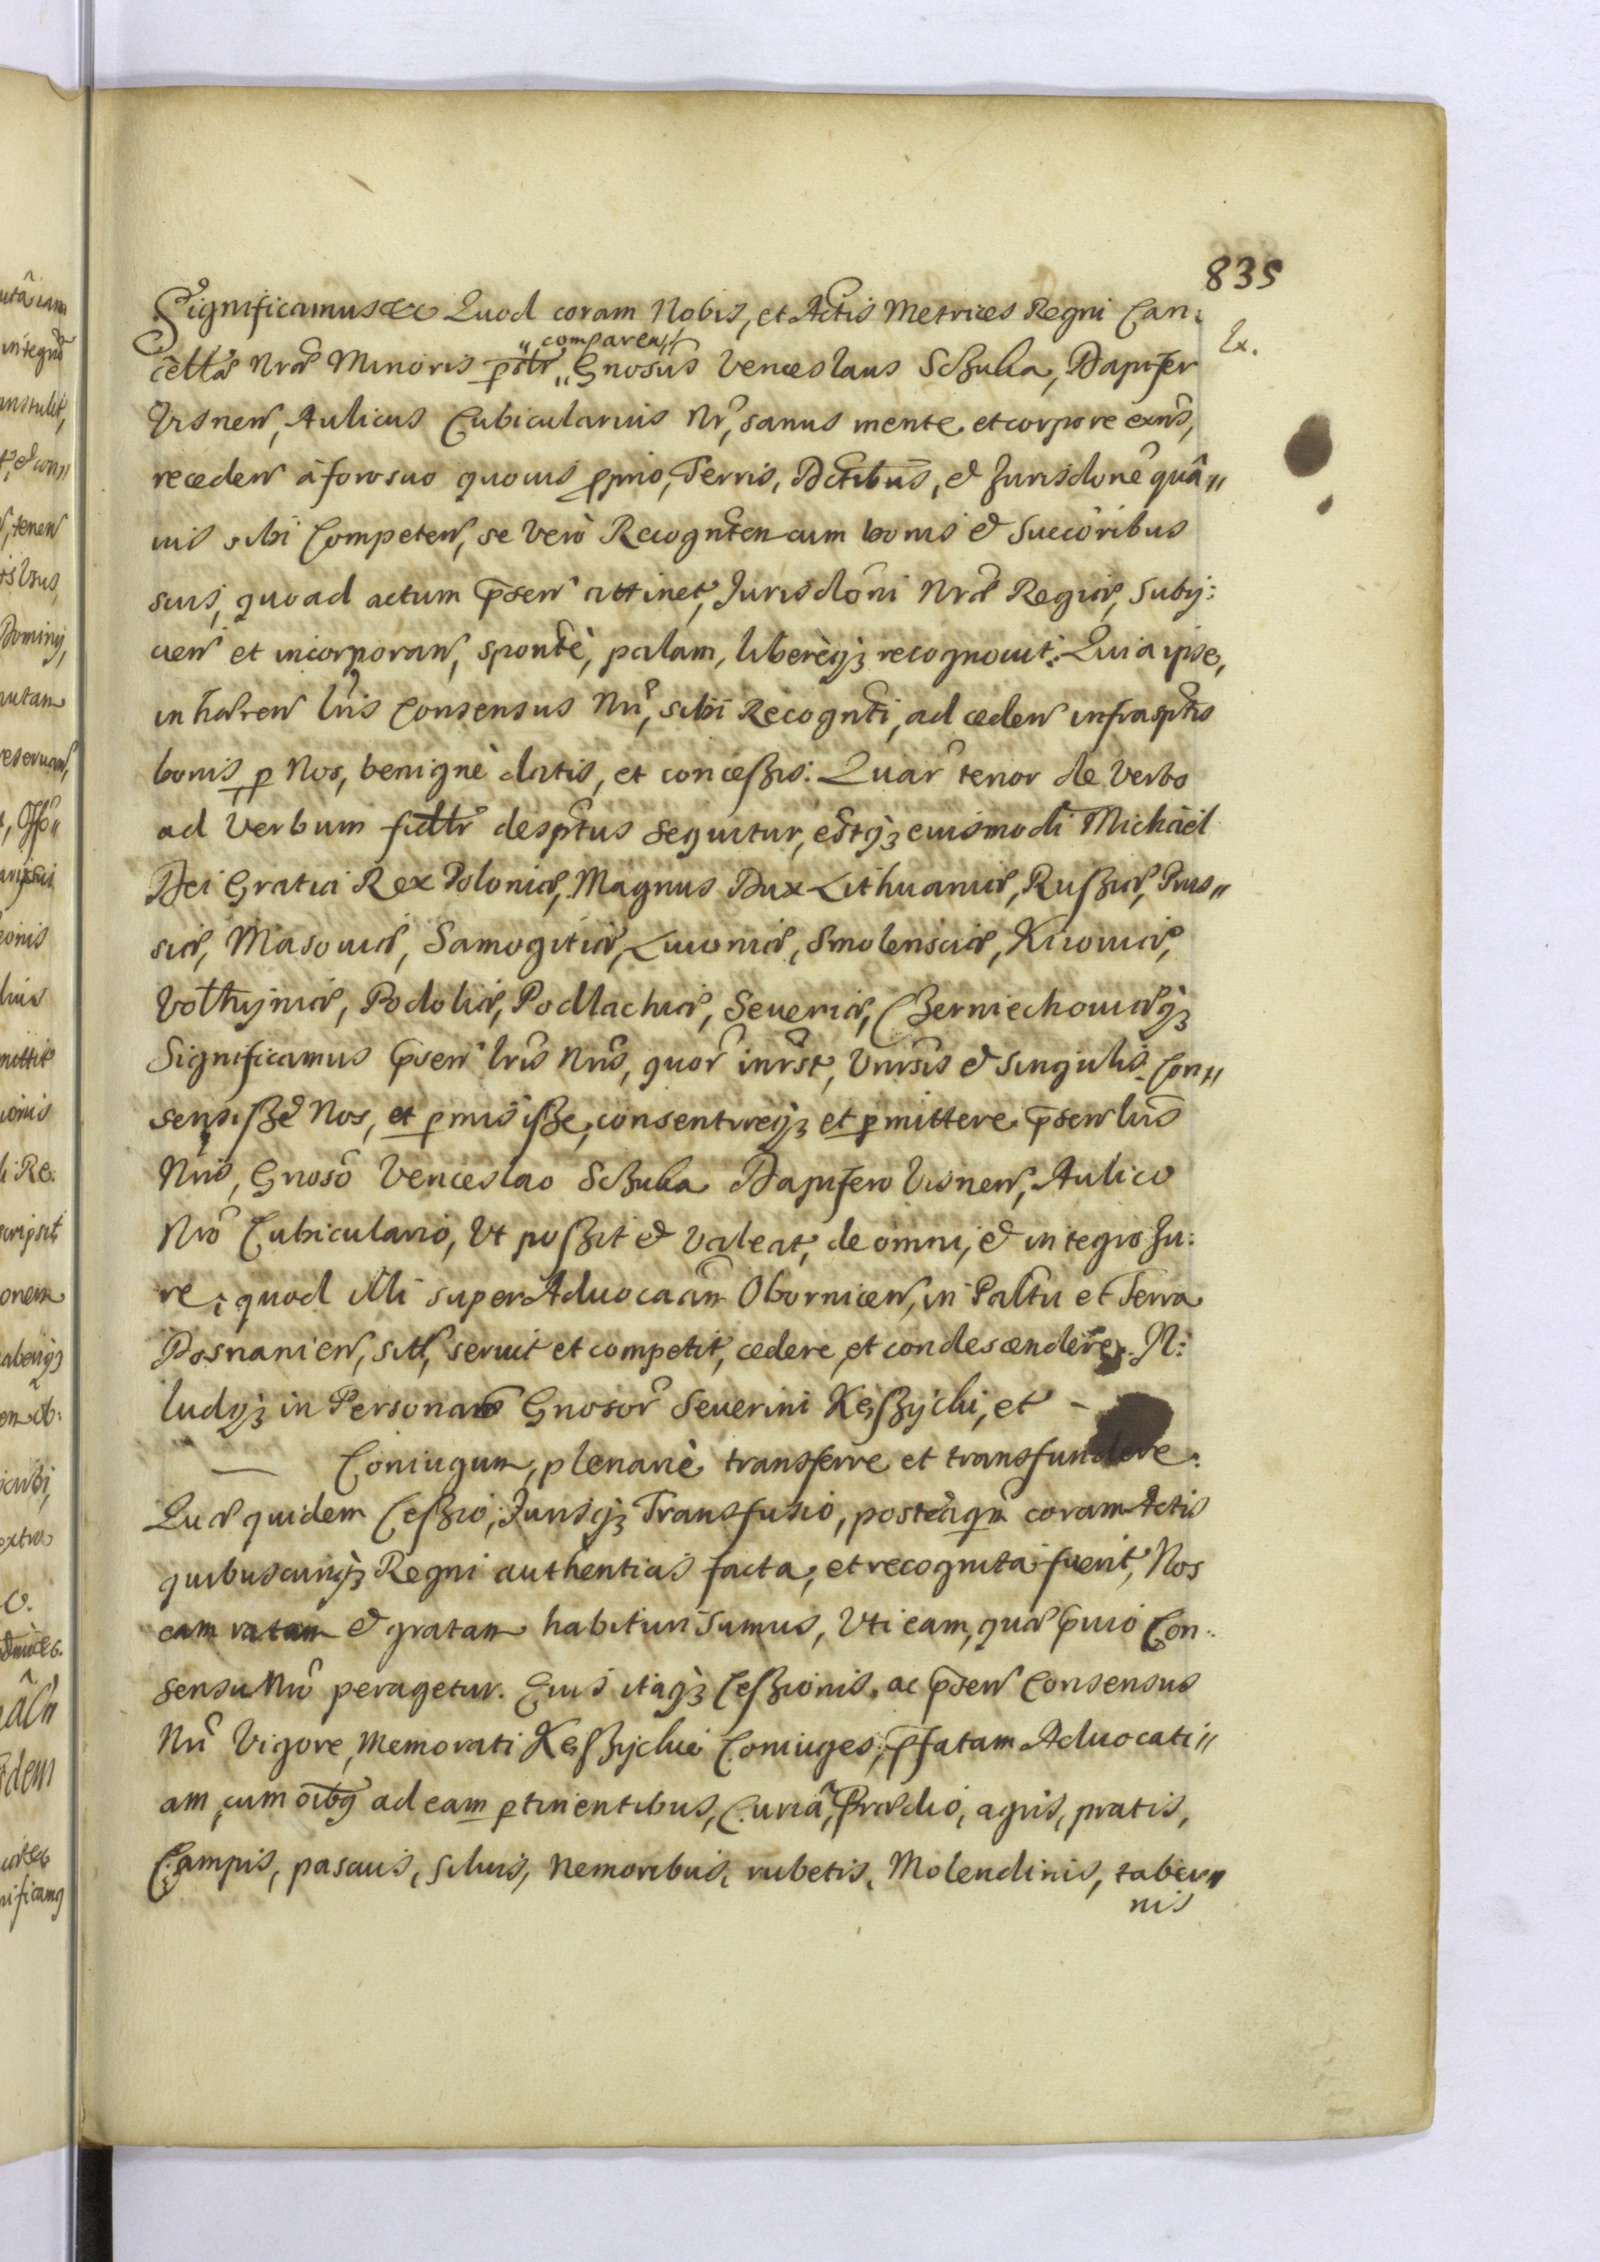 835
Significamus &c Quod coram Nobis, et Actis Metrices Regni Can:
Ex.
cellæ Nræ Minoris pntr „comparens„ Gnosus Venceslaus Sczuka, Dapifer
Visnen, Aulicus Cubicularius Nr, sanus mente et corpore exns,
receden à foro suo quouis pprio, Terris, Dctibus, et Jurisdone quâ„
uis sibi Competen, se verò Recognten cum bonis et Succoribus
suis, quoad actum pnsen attinet, Jurisdoni Nræ Regiæ, Subij:
cien et incorporan, spontè, palam, liberèq3 recognouit: Quia ipse,
inhæren lris Consensus Nri, sibi Recognti, ad ceden infrasptis
bonis p Nos, benignè datis, et conceßis: Quar tenor de verbo
ad verbum fidlr desptus sequitur, estq3 euismodi Michaël
Dei Gratia Rex Poloniæ, Magnus Dux Lithuaniæ, Rußiæ, Prus„
siæ, Masouiæ, Samogitiæ, Liuoniæ, Smolensciæ, Kiiouiæ,
Volhyniæ, Podoliæ, Podlachiæ, Seueriæ, Czerniechouiæq3
Significamus pnsen lris Nris, quor inrst, Vnrsis et singulis Con„
sensiße Nos, et pmisiße, consentireq3 et pmittere pnsen lris
Nris, Gnoso Venceslao Sczuka Dapifero Visnen, Aulico
Nro Cubiculario, Vt poßit et Valeat, de omni, et integro Ju:
re, quod illi super Aduocaam Obornicen, in Paltu et Terra
Posnanien, sitt, seruit et competit, cedere, et condescendere. Il:
ludq3 in Personas Gnosor Seuerini Kęßycki, et –
— Coniugum, plenariè transferre et transfundere.
Quæ quidem Ceßio, Jurisq3 Transfusio, posteaqm coram Actis
quibuscunq3 Regni authenticis facta, et recognita fuerit, Nos
eam ratam et gratam habituri sumus, Vti eam, quæ pvio Con:
sensu Nro peragetur. Cuius itaq3 Ceßionis, ac pnsen Consensus
Nri Vigore, Memorati Kęßyckie Coniuges, pfatam Aduocati„
am, cum oibq ad eam ptinentibus, Curiâ, Prædio, agris, pratis,
Campis, pascuis, siluis, Nemoribus, rubetis, Molendinis, taber„
nis